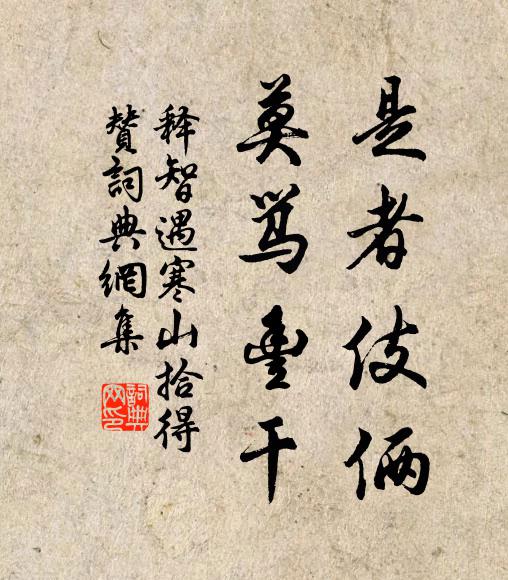 是者伎俩
莫骂丰干
释智遇寒山拾得
赞詞典網集
詞典
网印